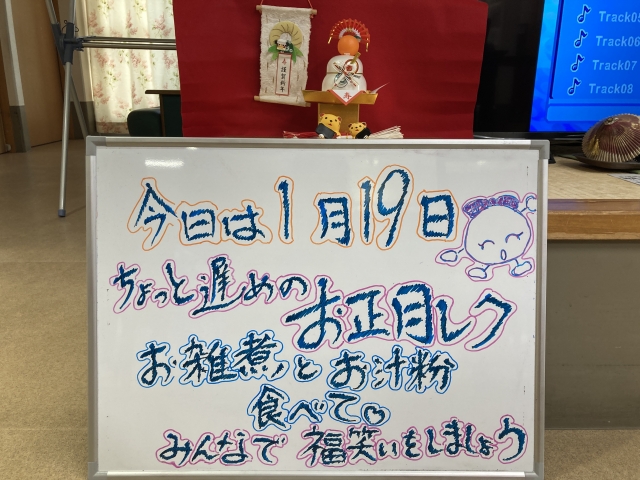 謹賀新年
寿
Track05
Track06
Track07
Track08
今日は1月19日
ちょっと遅めの
お正月レク
お雑煮とお汁粉
食べて♡
みんなで 福笑いをしましょう